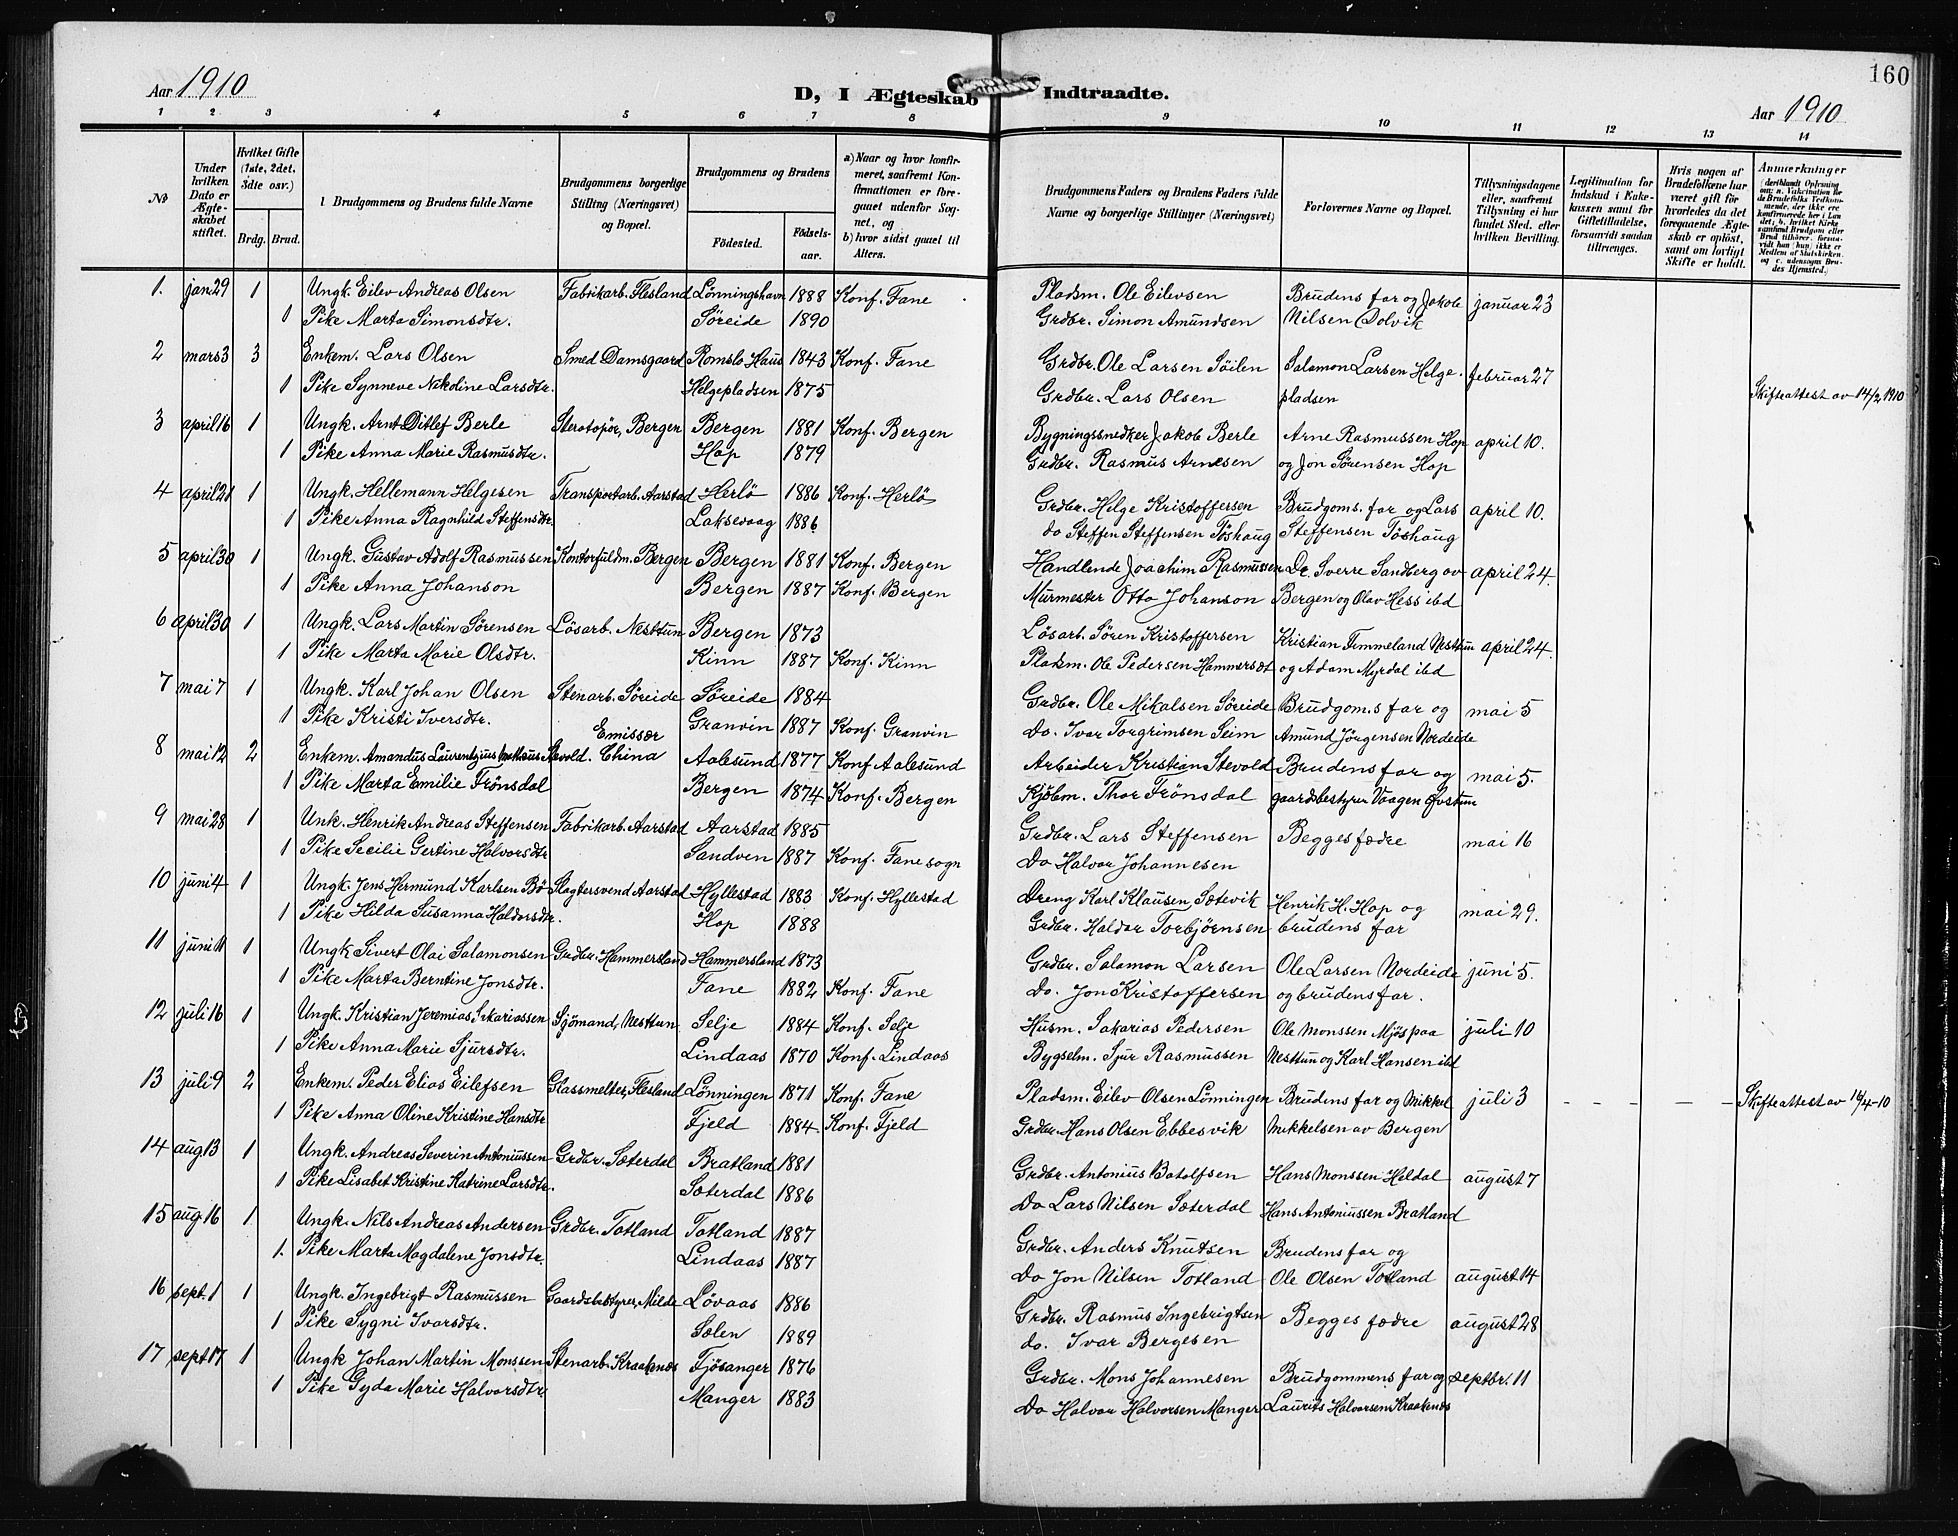 Aar 1910
D, I Ægteskab Indtraadte.
160
Aar 1910
1 2 3 4 5 6 7 8 9 10 11 12 13 14
No
Under hvilken Dato er Ægteskabet stiftet.
Hvilket Gifte (1ste, 2det, 3dte osv.)
Brdg. Brud.
Brudgommens og Brudens fulde Navne
Brudgommens borgerlige Stilling (Næringsvei) og Bopæl.
Brudgommens og Brudens
Fødested.
Fødselsaar.
a) Naar og hvor konfirmeret, saafremt Konfirmationen er foregaaet udenfor Sognet, og
b) hvor sidst gaaet til Alters.
Brudgommens Faders og Brudens Faders fulde Navne og borgerlige Stillinger (Næringsvei)
Forlovernes Navne og Bopæl.
Tillysningsdagene eller, saafremt Tillysning ei har fundet Sted, efter hvilken Bevilling.
Legitimation for Indskud i Enkekassen samt for Giftetilladelse, forsaavidt saadan tiltrænges.
Hvis nogen af Brudefolkene har været gift før hvorledes da det foregaaende Ægteskab er opløst, samt om lovligt Skifte er holdt.
Anmerkninger
1. jan 29 1 Ungk. Eilev Andreas Olsen Fabrikarb. Flesland Lönningshavn 1888 Konf. Fane Pladsm. Ole Eilevsen Brudens far og Jakob januar 23
1 Pike Marta Simonsdtr. Søreide 1890 Grdbr. Simon Amundsen Nilsen Dolvik
2 mars 3 3 Enkem. Lars Olsen Smed Damsgaard Romslo Haus 1843 Konf. Fane Grdbr. Ole Larsen Söilen Salomon Larsen Helge- februar 27
1 Pike Synneve Nikoline Larsdtr. Helgepladsen 1875 Grdbr. Lars Olsen pladsen Skifteattest av 14/2 1910
3 april 16 1 Ungk. Arnt Ditlef Berle Sterotopör, Bergen Bergen 1881 Konf. Bergen Bygningssnedker Jakob Berle Arne Rasmussen Hop april 10.
1 Pike Anna Marie Rasmusdtr. Hop 1879 Grdbr. Rasmus Arnesen og Jon Sørensen Hop
4 april 21 1 Ungk. Hellemann Helgesen Transportarb. Aarstad Herlö 1886 Konf. Herlö Grdbr. Helge Kristoffersen Brudgoms. far og Lars april 10.
1 Pike Anna Ragnhild Steffensdtr. Laksevaag 1886 do Steffen Steffensen Töshaug Steffensen Töshaug
5 april 30 1 Ungk. Gustav Adolf Rasmussen Kontorfuldm. Bergen Bergen 1881 Konf. Bergen Handlende Joachim Rasmussen Dr. Sverre Sandberg av april 24
1 Pike Anna Johanson Bergen 1887 Konf. Bergen Murmester Otto Johanson Bergen og Olav Hess ibd
6 april 30 1 Ungk. Lars Martin Sörensen Lösarb. Nesttun Bergen 1873 Lösarb. Sören Kristoffersen Kristian Timmeland Nesttun april 24.
1 Pike Marta Marie Olsdtr. Kinn 1887 Konf. Kinn Pladsm. Ole Pedersen Hammersdt og Adam Myrdal ibd
7 mai 7 1 Ungk. Karl Johan Olsen Stenarb. Söreide Söreide 1884 Grdbr. Ole Mikalsen Söreide Brudgom.s far og mai 5
1 Pike Kristi Iversdtr. Granvin 1887 Konf. Granvin Do. Ivar Torgrimsen Seim Amund Jörgensen Nordeide
Emissær
8 mai 12 2 Enkem. Amandus Laurentzius Stevold. China Aalesund 1877 Konf Aalesund Arbeider Kristian Stevold Brudens far og mai 5.
1 Pike Marta Emilie Frönsdal Bergen 1874 Konf. Bergen Kjöbm. Thor Frönsdal gaardsbestyrer Vaagen Øvstun
9 mai 28 1 Unk. Henrik Andreas Steffensen Fabrikarb. Aarstad Aarstad 1885 Grdbr. Lars Steffensen Begges fædre mai 16
1 Pike Secilie Gertine Halvorsdtr Sandven 1887 Konf. Fane sogn Do Halvor Johannesen
10 juni 4 1 Ungk. Jens Hermund Karlsen Bö Slagtersvend Aarstad Hyllestad 1883 Konf. Hyllestad Dreng Karl Klausen Sætevik Henrik H. Hop og mai 29.
1 Pike Hilda Susanna Haldorsdtr. Hop 1888 Grdbr. Haldor Torbjörnsen brudens far
11 juni 11 1 Ungk Sivert Olai Salamonsen Grdbr. Hammersland Hammersland 1873 Grdbr. Salamon Larsen Ole Larsen Nordeide juni 5.
1 Pike Marta Berntine Jonsdtr. Fane 1882 Konf. Fane Do. Jon Kristoffersen og brudens far.
12 juli 16 1 Ungk. Kristian Jeremias Sakariassen Sjömand, Nesttun Selje 1884 Konf. Selje Husm. Sakarias Pedersen Ole Monssen Mjös paa juli 10
1 Pike Anna Marie Sjursdtr. Lindaas 1870 Konf. Lindaas Bygselm. Sjur Rasmussen Nesttun og Karl Hansen ibd
13 juli 9 2 Enkem. Peder Elias Eilefsen Glassmelter, Flesland Lönningen 1871 Konf. Fane Pladsm. Eilev Olsen Lönningen Brudens far og Mikkel juli 3 - - - - - Skifteattest av 16/4-10
1 Pike Anna Oline Kristine Hansdtr Fjeld 1884 Konf. Fjeld Grdbr. Hans Olsen Ebbesvik Mikkelsen av Bergen
14 aug 13 1 Ungk. Andreas Severin Antoniussen Grdbr. Sæterdal Bratland 1881 Grdbr. Antonius Botolfsen Hans Monssen Heldal august 7
1 Pike Lisabet Kristine Katrine Larsdtr. Sæterdal 1886 Do Lars Nilsen Sæterdal Hans Antoniussen Bratland
15 aug. 16 1. Ungk. Nils Andreas Andersen Grdbr. Totland Totland 1887 Grdbr. Anders Knutsen Brudens far og august 14
1. Pike Marta Magdalene Jonsdtr. Lindaas 1887 Do Jon Nilsen Totland Ole Olsen Totland
16 sept. 1 1 Ungk. Ingebrigt Rasmussen Gaardsbestyrer, Milde Lövaas 1886 Grdbr. Rasmus Ingebrigtsen Begges fædre august 28
1 Pike Sygni Ivarsdtr. Sælen 1889 do. Ivar Bergesen
17 sept 17 1 Ungk Johan Martin Monssen Stenarb. Kraakenes Fjösanger 1876 Grdbr. Mons Johannesen Brudgommens far og septbr. 11
1 Pike Gyda Marie Halvorsdtr Manger 1883 Do Halvor Halvorsen Manger Laurits Halvorsen Kraakenes